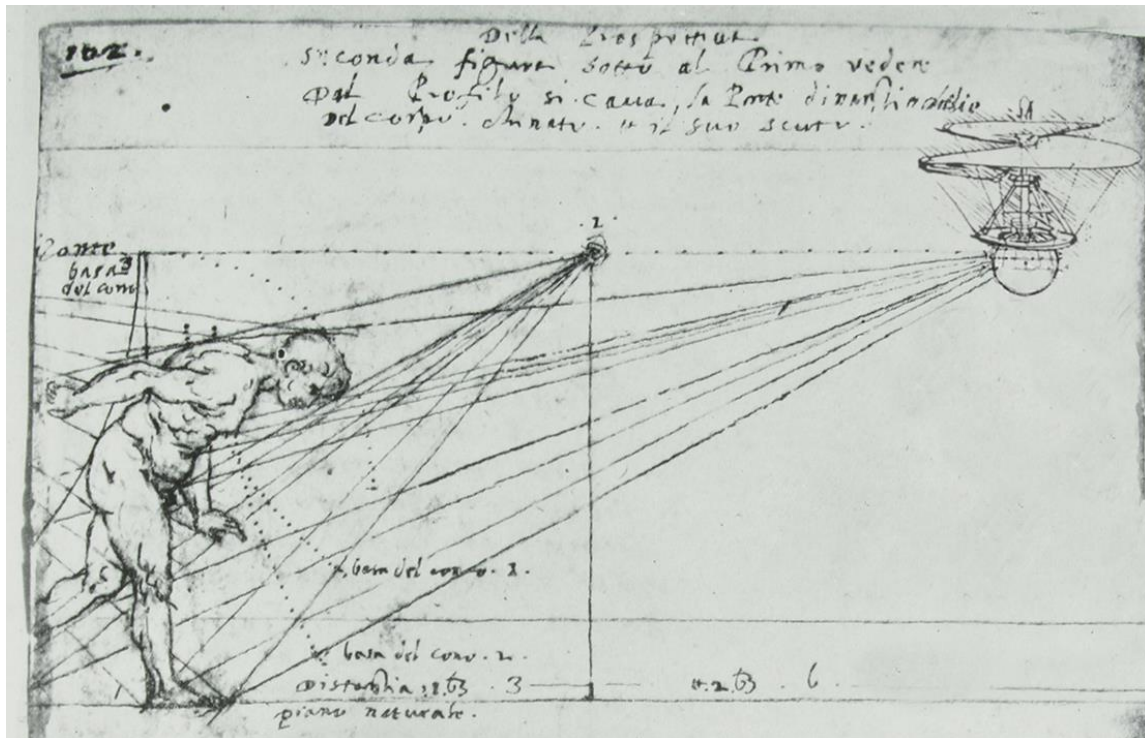 102.
Della Prospettiua
seconda figura sotto al Primo vedere
Dal Profilo si caua, la Parte dinanti
del corpo. chinato. il suo scurto.
1.
basa
del cono
basa del cono. 1.
basa del cono. 2.
Distantia 3
6.
piano naturale.